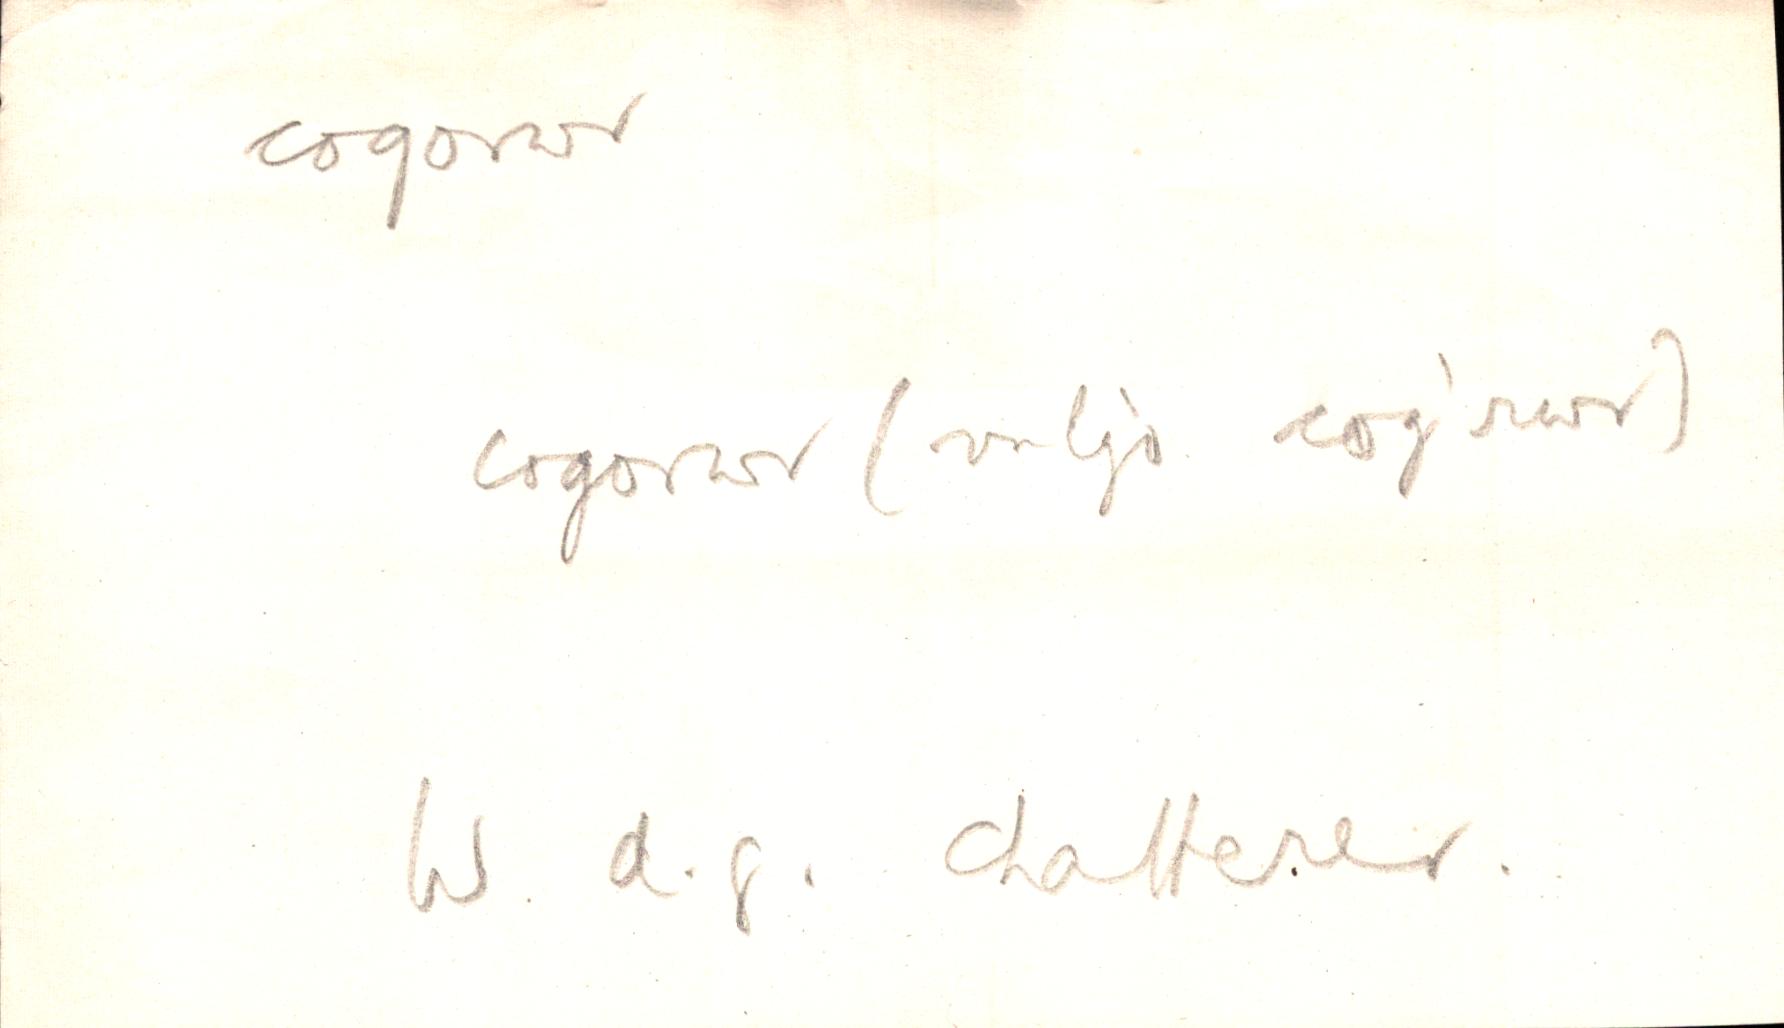 cogorwr
cogorwr (vulgo cog'rwr)
W. d.g. chatterer.